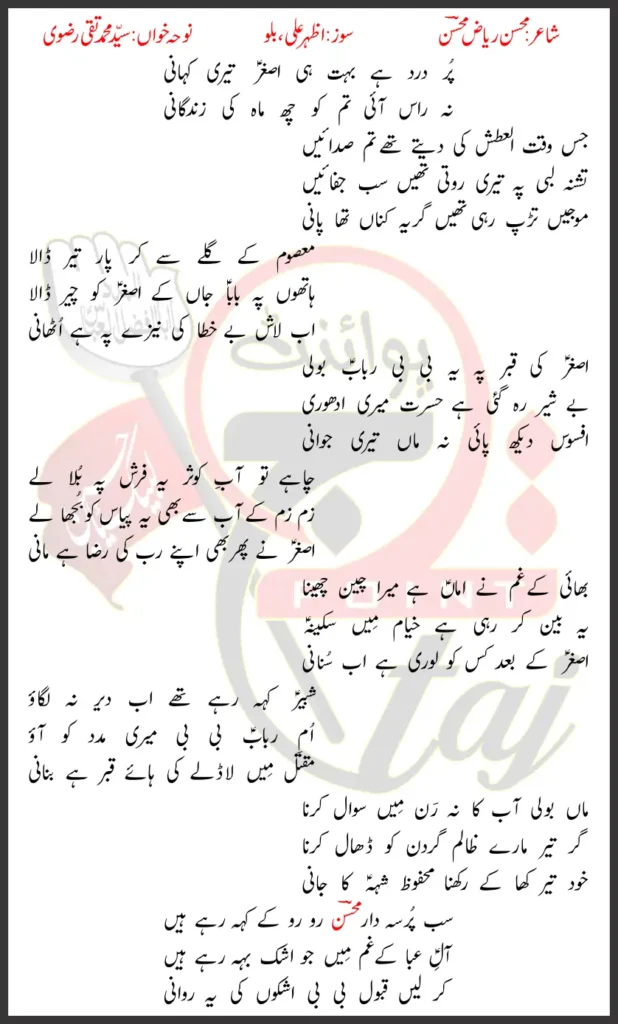 شاعر: محسن ریاض محسنؔ سوز: اظہر علی، بلو نوحہ خواں: سیّد محمد تقی رضوی
پُر درد ہے بہت ہی اصغرؑ تیری کہانی
نہ راس آئی تم کو چھ ماہ کی زندگانی
جس وقت العطش کی دیتے تھے تم صدائیں
تشنہ لبی پہ تیری روتی تھیں سب جفائیں
موجیں تڑپ رہی تھیں گریہ کناں تھا پانی
معصوم کے گلے سے کر پار تیر ڈالا
ہاتھوں پہ باباؑ جاں کے اصغرؑ کو چیر ڈالا
اب لاش بے خطا کی نیزے پہ ہے اُٹھانی
اصغرؑ کی قبر پہ یہ بی بی ربابؑ بولی
بے شیر رہ گئی ہے حسرت میری ادھوری
افسوس دیکھ پائی نہ ماں تیری جوانی
چاہے تو آبِ کوثر یہ فرش پہ بُلا لے
زم زم کے آب سے بھی یہ پیاس کو بُجھا لے
اصغرؑ نے پھر بھی اپنے رب کی رضا ہے مانی
بھائی کے غم نے اماںؑ ہے میرا چین چھینا
یہ بین کر رہی ہے خیام مِیں سکینہؑ
اصغرؑ کے بعد کس کو لوری ہے اب سُنانی
شبیرؑ کہہ رہے تھے اب دیر نہ لگاؤ
اُمِ ربابؑ بی بی میری مدد کو آؤ
مقتل مِیں لاڈلے کی ہائے قبر ہے بنانی
ماں بولی آب کا نہ رَن مِیں سوال کرنا
گر تیر مارے ظالم گردن کو ڈھال کرنا
خود تیر کھا کے رکھنا محفوظ شہہؑ کا جانی
سب پُرسہ دار محسنؔ رو رو کے کہہ رہے ہیں
آلِ عبا کے غم مِیں جو اشک بہہ رہے ہیں
کر لیں قبول بی بی اشکوں کی یہ روانی
پوائنٹ
POINT
taj